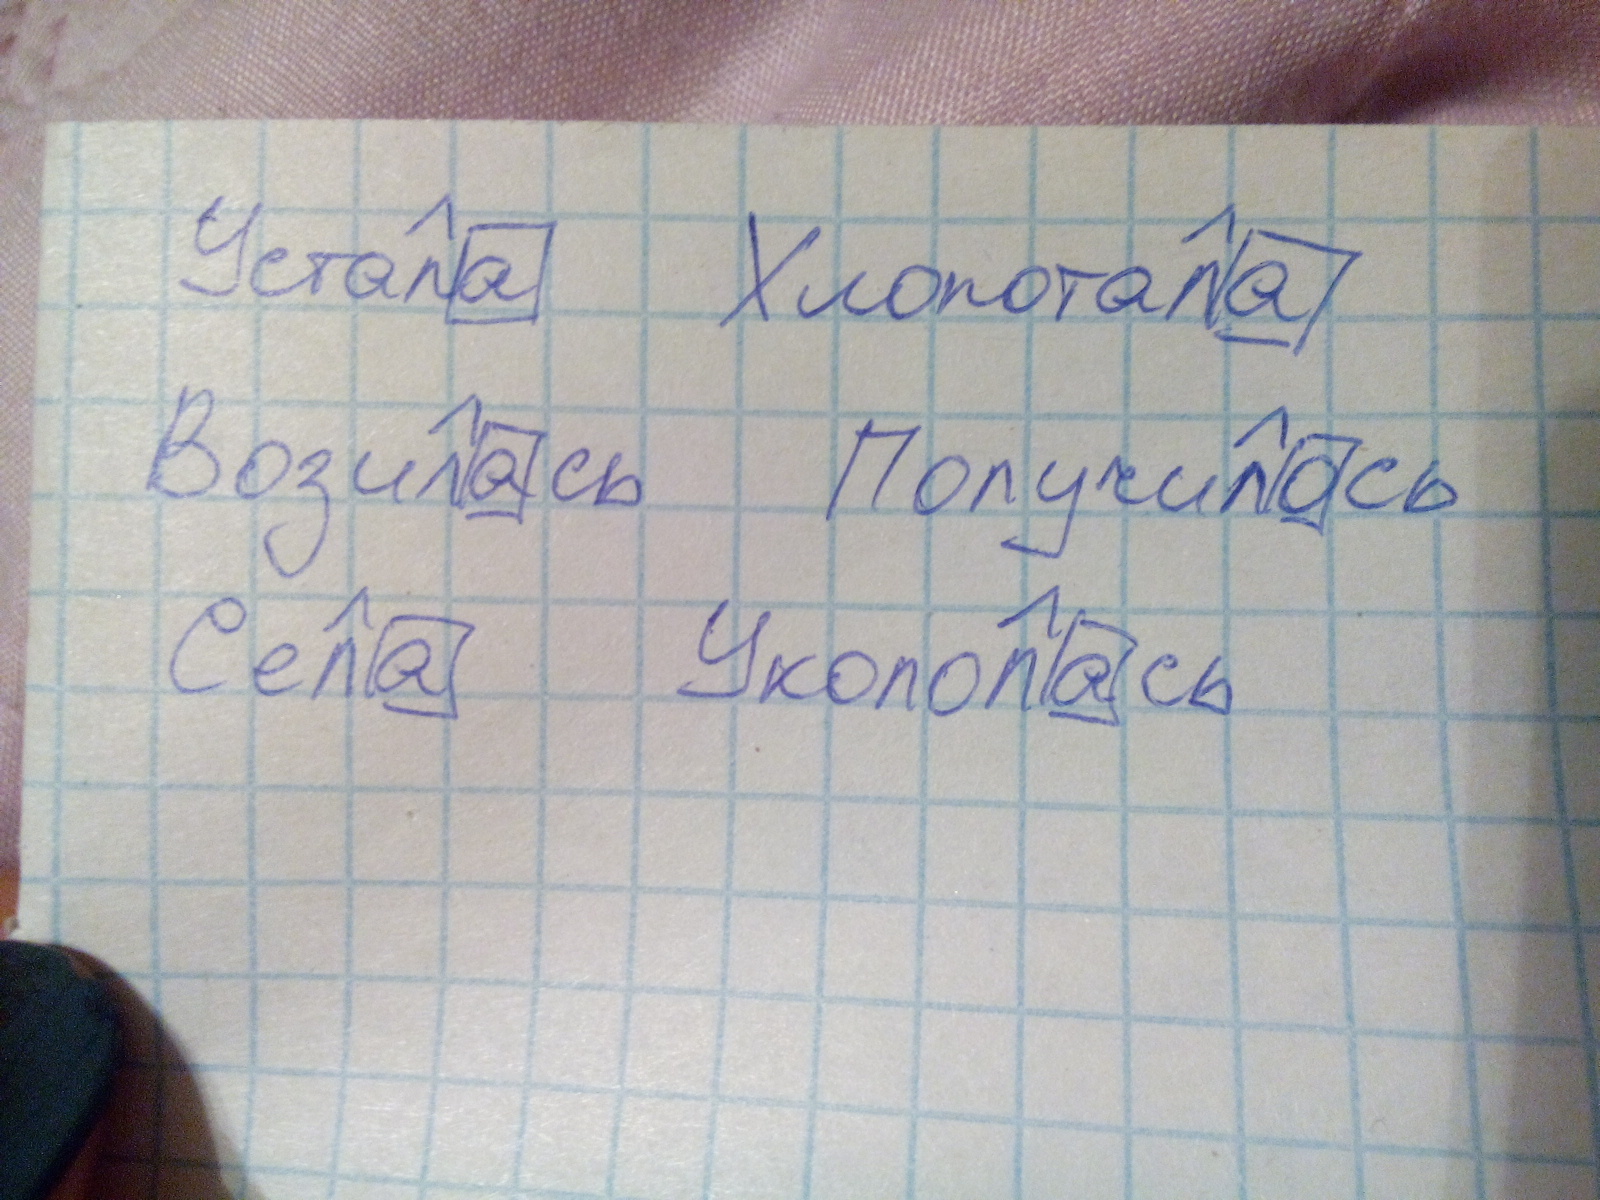 Устала Хлопотала
Возилась Получилось
Села Укололась